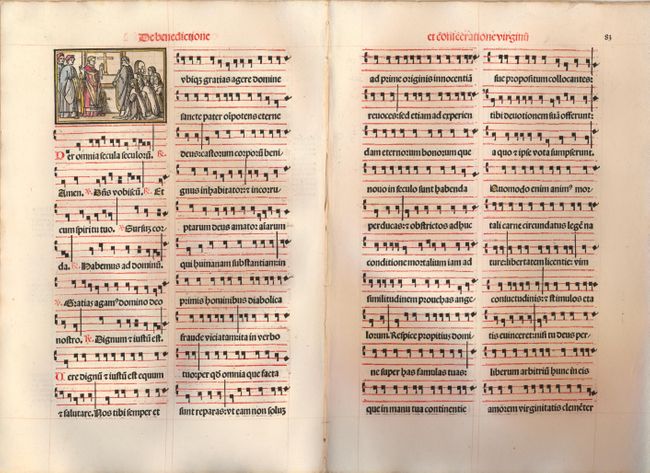 De benedictione
Per omnia secula seculorũ. ℟.
Amen. ℣. Dñs vobiscũ. ℟. Et
cum spiritu tuo. ℣. Sursuz cor
da. ℟. Habemus ad dominũ.
℣. Gratias agamꝰ domino deo
nostro. ℟. Dignum ⁊ iustũ est.
Vere dignũ ⁊ iustũ est equum
⁊ salutare. Nos tibi semper et
vbiqz gratias agere domine
sancte pater oĩpotens eterne
deus: castorum corporũ beni-
gnus inhabitator: ⁊ incorru-
ptarum deus amator aĩarum
qui humanam substantiam: in
primis hominibus diabolica
fraude viciatam: ita in verbo
tuo: per qđ omnia que facta
sunt reparas: vt eam non soluz
et consecratione virginũ
83
ad prime originis innocentiã
reuoces: sed etiam ad experien
dam eternorum bonorum que
nouo in seculo sunt habenda
perducas: ⁊ obstrictos adhuc
conditione mortalium iam ad
similitudinem prouehas ange-
lorum. Respice propitius domi
ne super has famulas tuas:
que in manu tua continentie
sue propositum collocantes:
tibi deuotionem suã offerunt:
a quo ⁊ ipse vota sumpserunt.
Quomodo enim animꝰ mor-
tali carne circundatus legẽ na
ture: libertatem licentie: vim
consuetudinis: ⁊ stimulos eta
tis euinceret: nisi tu deus per
liberum arbitriũ hunc in eis
amorem virginitatis clemẽter